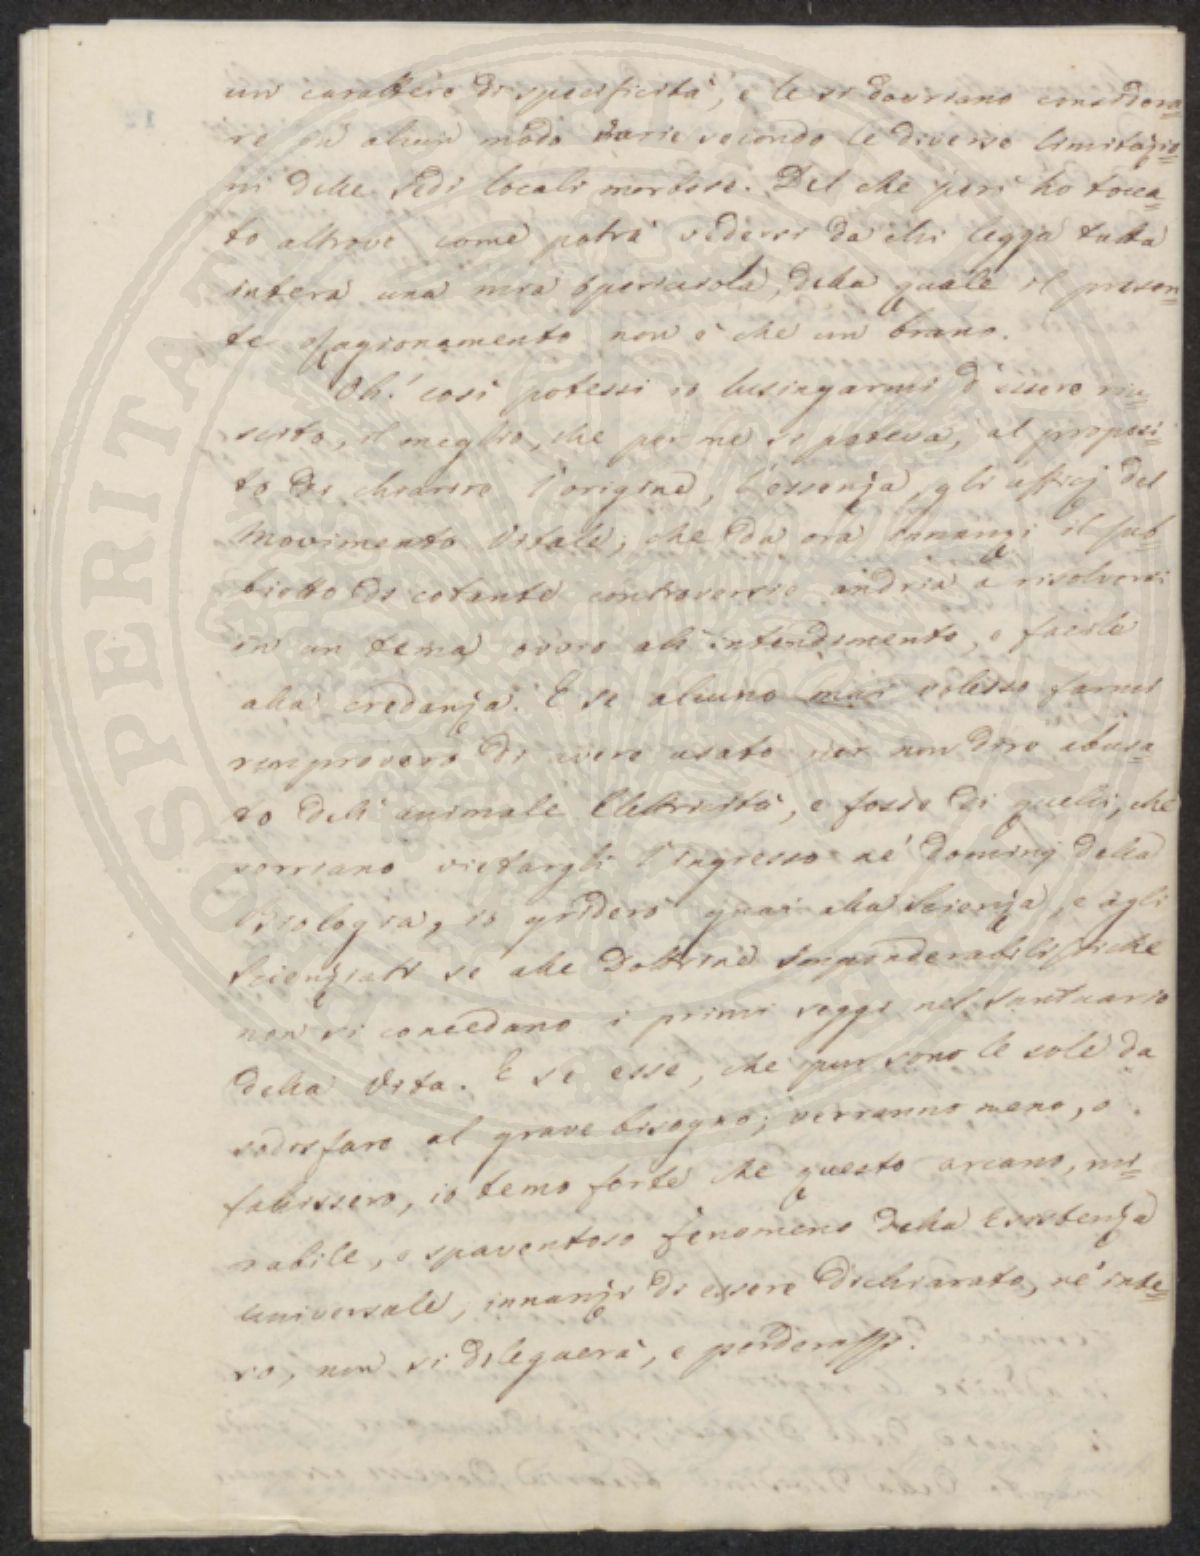 un carattere di specificità, e le si dovriano considera=
re in alcun modo varie secondo le diverse limitazio=
ni delle sedi locali morbose. Del che però ho tocca=
to altrove come potrà vedersi da chi legga tutta
intera una mia opericciola, della quale il presen=
te Ragionamento non è che un brano.
Oh! così potessi io lusingarmi d'essere riu=
scito, il meglio, che per me si poteva, al proposi=
to di chiarire l'origine, l'essenza, gli ufficj del
Movimento Vitale, che da ora innanzi il sub=
bietto di cotante controversie andria a risolversi
in un tema ovvio all'intendimento, e facile
alla credenza. E se alcuno mai volesse farmi
rimprovero di avere usato per non dire abusa=
to dell'animale Elettricità, e fosse di quelli, che
vorriano vietargli l'ingresso ne' dominj della
Fisiologia, io griderò guai alla Scienza, e agli
Scienziati se alle Dottrine Imponderabilistiche
non si concedano i primi seggi nel Santuario
della Vita. E se esse, che pur sono le sole da
sodisfare al grave bisogno, verranno meno, o
fallissero, io temo forte che questo arcano, mi=
rabile, e spaventoso fenomeno della Esistenza
universale, innanzi di essere dichiarato, né inte=
ro, non si dileguerà, e perderassi.
PROSPERITAT